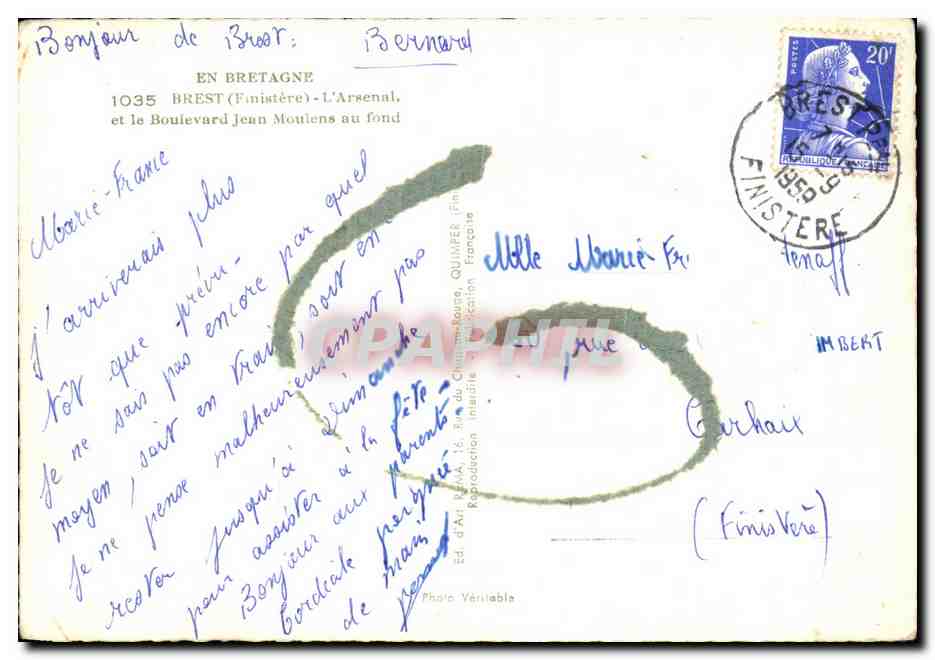 Bonjour de Brest: Bernard
EN BRETAGNE
1035 BREST (Finistère) - L'Arsenal,
et le Boulevard Jean Moulens au fond
Marie-France
j'arriverais plus
tôt que prévu -
Je ne sais pas encore par quel
moyen, soit en train, soit en
Je ne pense malheureusement pas
rester jusqu'à dimanche
pour assister à la fête -
Bonjour aux parents -
Cordiale poignée
de main
Bernard
Photo Véritable
Ed. d'Art REMA, 16, Rue du Chapeau-Rouge, QUIMPER (Fin
Reproduction Interdite - Fabrication Française
POSTES
20F
REPUBLIQUE FRANÇAISE
BREST
15 -9
1959
FINISTERE
Mlle Marie-Fr
tenaff
rue
IMBERT
Carhaix
(Finistère)
CPAPHIL